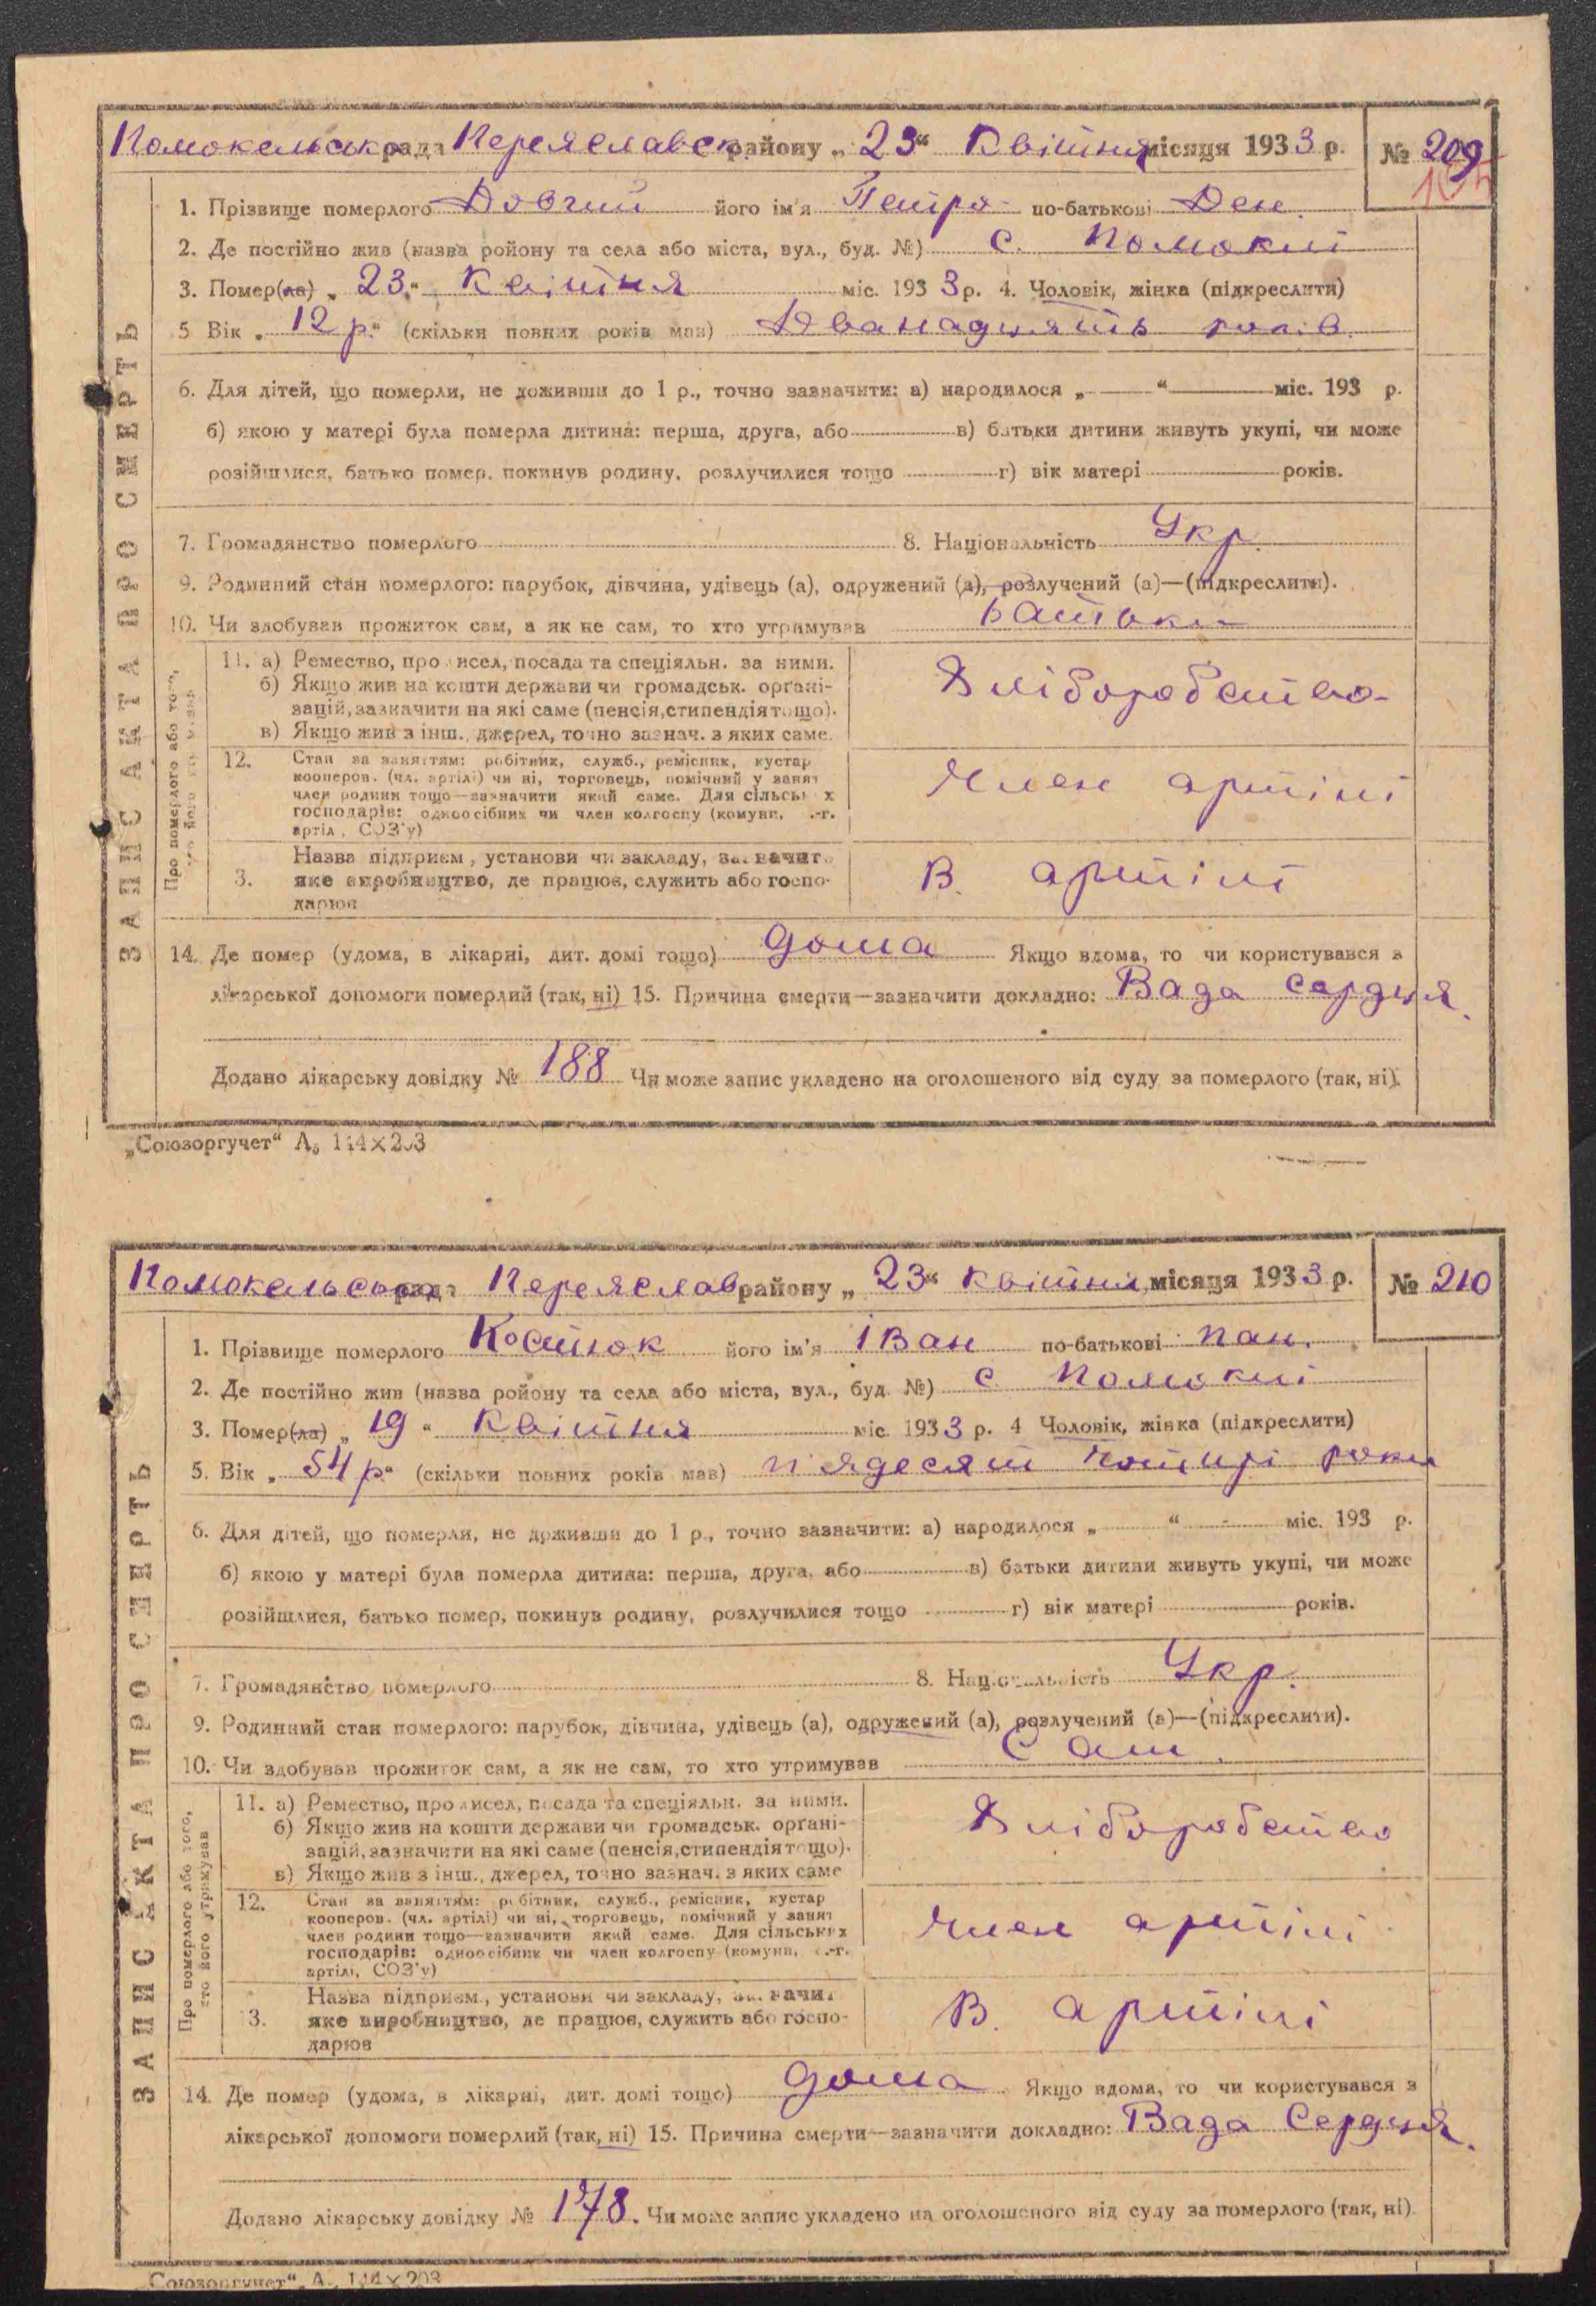 Помокельська рада Переяславск району „23“ Квітня місяця 1933 р. № 209
1. Прізвище померлого Довгий його ім'я Петро по-батькові Ден.
2. Де постійно жив (назва ройону та села або міста, вул., буд. №) с. Помоклі
3. Помер(ла) „23“ Квітня міс. 1933 р. 4. Чоловік, жінка (підкреслити)
5 Вік „12 р.“ (скільки повних років мав) Дванадцять років.
6. Для дітей, що померли, не доживши до 1 р., точно зазначити: а) народилося „ “ міс. 193 р.
б) якою у матері була померла дитина: перша, друга, або в) батьки дитини живуть укупі, чи може
розійшлися, батько помер, покинув родину, розлучилися тощо г) вік матері років.
7. Громадянство померлого 8. Національність Укр.
9. Родинний стан померлого: парубок, дівчина, удівець (а), одружений (а), розлучений (а)—(підкреслити).
10. Чи здобував прожиток сам, а як не сам, то хто утримував батьки
ЗАПИС АКТА ПРО СМЕРТЬ
Про померлого або того,
11. а) Ремество, промисел, посада та спеціяльн. за ними.
б) Якщо жив на кошти держави чи громадськ. орґані-
зацій, зазначити на які саме (пенсія, стипендія тощо).
в) Якщо жив з інш., джерел, точно зазнач. з яких саме.
Хліборобство
12. Стан за заняттям: робітник, служб., ремісник, кустар
кооперов. (чл. артілі) чи ні, торговець, помічний у занят
член родини тощо—зазначити який саме. Для сільських
господарів: одноосібник чи член колгоспу (комуни, с.-г.
артіл, СОЗ'у)
Член артілі
3. Назва підприєм, установи чи закладу, зазначит
яке виробництво, де працює, служить або госпо-
дарює
В. артілі
14. Де помер (удома, в лікарні, дит. домі тощо) дома Якщо вдома, то чи користувався з
лікарської допомоги померлий (так, ні) 15. Причина смерти—зазначити докладно: Вада Сердця.
Додано лікарську довідку № 188 Чи може запис укладено на оголошеного від суду за померлого (так, ні).
„Союзоргучет“ А₅ 144×203
Помокельська рада Переяслав району „23“ квітня місяця 1933 р. № 210
1. Прізвище померлого Костюк його ім'я Іван по-батькові Пан.
2. Де постійно жив (назва ройону та села або міста, вул., буд. №) с. Помоклі
3. Помер(ла) „19“ Квітня міс. 1933 р. 4 Чоловік, жінка (підкреслити)
5. Вік „54 р.“ (скільки повних років мав) п'ядесят чотирі роки
6. Для дітей, що померли, не доживши до 1 р., точно зазначити: а) народилося „ “ міс. 193 р.
б) якою у матері була померла дитина: перша, друга, або в) батьки дитини живуть укупі, чи може
розійшлися, батько помер, покинув родину, розлучилися тощо г) вік матері років.
7. Громадянство померлого 8. Національність Укр.
9. Родинний стан померлого: парубок, дівчина, удівець (а), одружений (а), розлучений (а)—(підкреслити).
10. Чи здобував прожиток сам, а як не сам, то хто утримував Сам.
ЗАПИС АКТА ПРО СМЕРТЬ
Про померлого або того,
хто його утримував
11. а) Ремество, промисел, посада та спеціяльн. за ними.
б) Якщо жив на кошти держави чи громадськ. орґані-
зацій, зазначити на які саме (пенсія, стипендія тощо).
в) Якщо жив з інш., джерел, точно зазнач. з яких саме
Хліборобство
12. Стан за заняттям: робітник, служб., ремісник, кустар
кооперов. (чл. артілі) чи ні, торговець, помічний у занят
член родини тощо—зазначити який саме. Для сільських
господарів: одноосібник чи член колгоспу (комуни, с.-г.
артілі, СОЗ'у)
Член артілі
3. Назва підприєм., установи чи закладу, зазначит
яке виробництво, де працює, служить або госпо-
дарює
В. артілі
14. Де помер (удома, в лікарні, дит. домі тощо) дома Якщо вдома, то чи користувався з
лікарської допомоги померлий (так, ні) 15. Причина смерти—зазначити докладно: Вада Сердця.
Додано лікарську довідку № 178. Чи може запис укладено на оголошеного від суду за померлого (так, ні).
„Союзоргучет“, А₅ 144×203